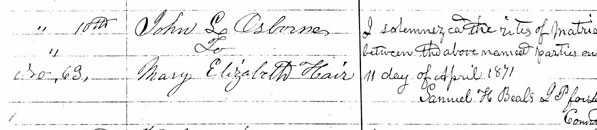 " 10th John L Osborne I solemnized the rites of Matri
" To between the above named parties on
No, 63, Mary Elizabeth Hair 11 day of April 1871
Samuel H Beals J P for